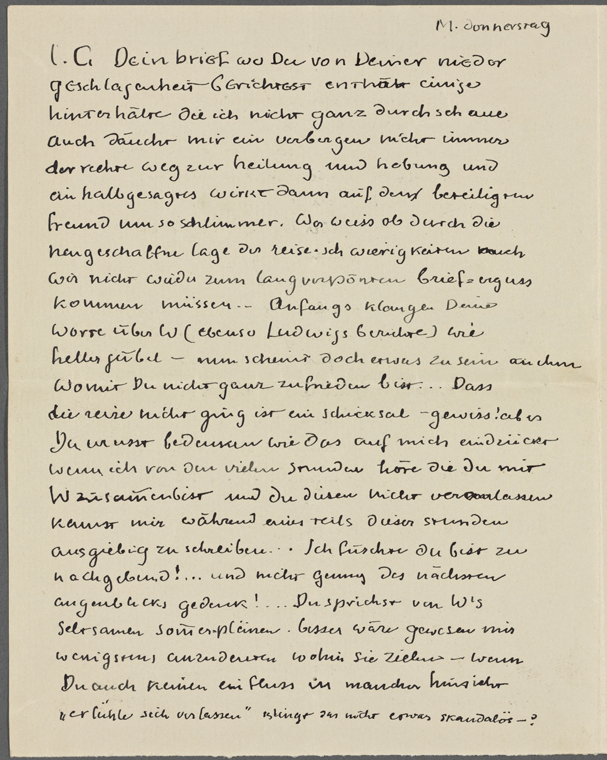 M. Donnerstag
l. G Dein brief wo Du von Deiner nieder
geschlagenheit berichtest enthält einige
hinterhälte die ich nicht ganz durchschaue
auch däucht mir ein verbergen nicht immer
der rechte weg zur heilung und hebung und
ein halbgesagtes wirkt dann auf den beteiligten
freund um so schlimmer. Wer weiss ob durch die
neugeschaffne lage der reise-schwierigkeiten auch
wir nicht wieder zum langverpönten brief=erguss
kommen müssen... Anfangs klangen Deine
worte über W (ebenso Ludwigs berichte) wie
heller jubel – nun scheint doch etwas zu sein an dem
womit Du nicht ganz zufrieden bist... Dass
die reise nicht ging ist ein schicksal – gewiss! aber
Du musst bedenken wie das auf mich eindrückt
wenn ich von den vielen stunden höre die du mit
W zusam̄en bist und du diesen nicht veranlassen
kannst mir während eines teils dieser stunden
ausgiebig zu schreiben... Ich fürchte du bist zu
nachgebend!... und nicht genug des nächsten
augenblicks gedenk!... Du sprichst von W's
seltsamen som̄erplänen. besser wäre gewesen mir
wenigstens anzudeuten wohin sie zielen – wenn
Du auch keinen einfluss in mancher hinsicht
„er fühle sich verlassen“ klingt das nicht etwas skandalös –?